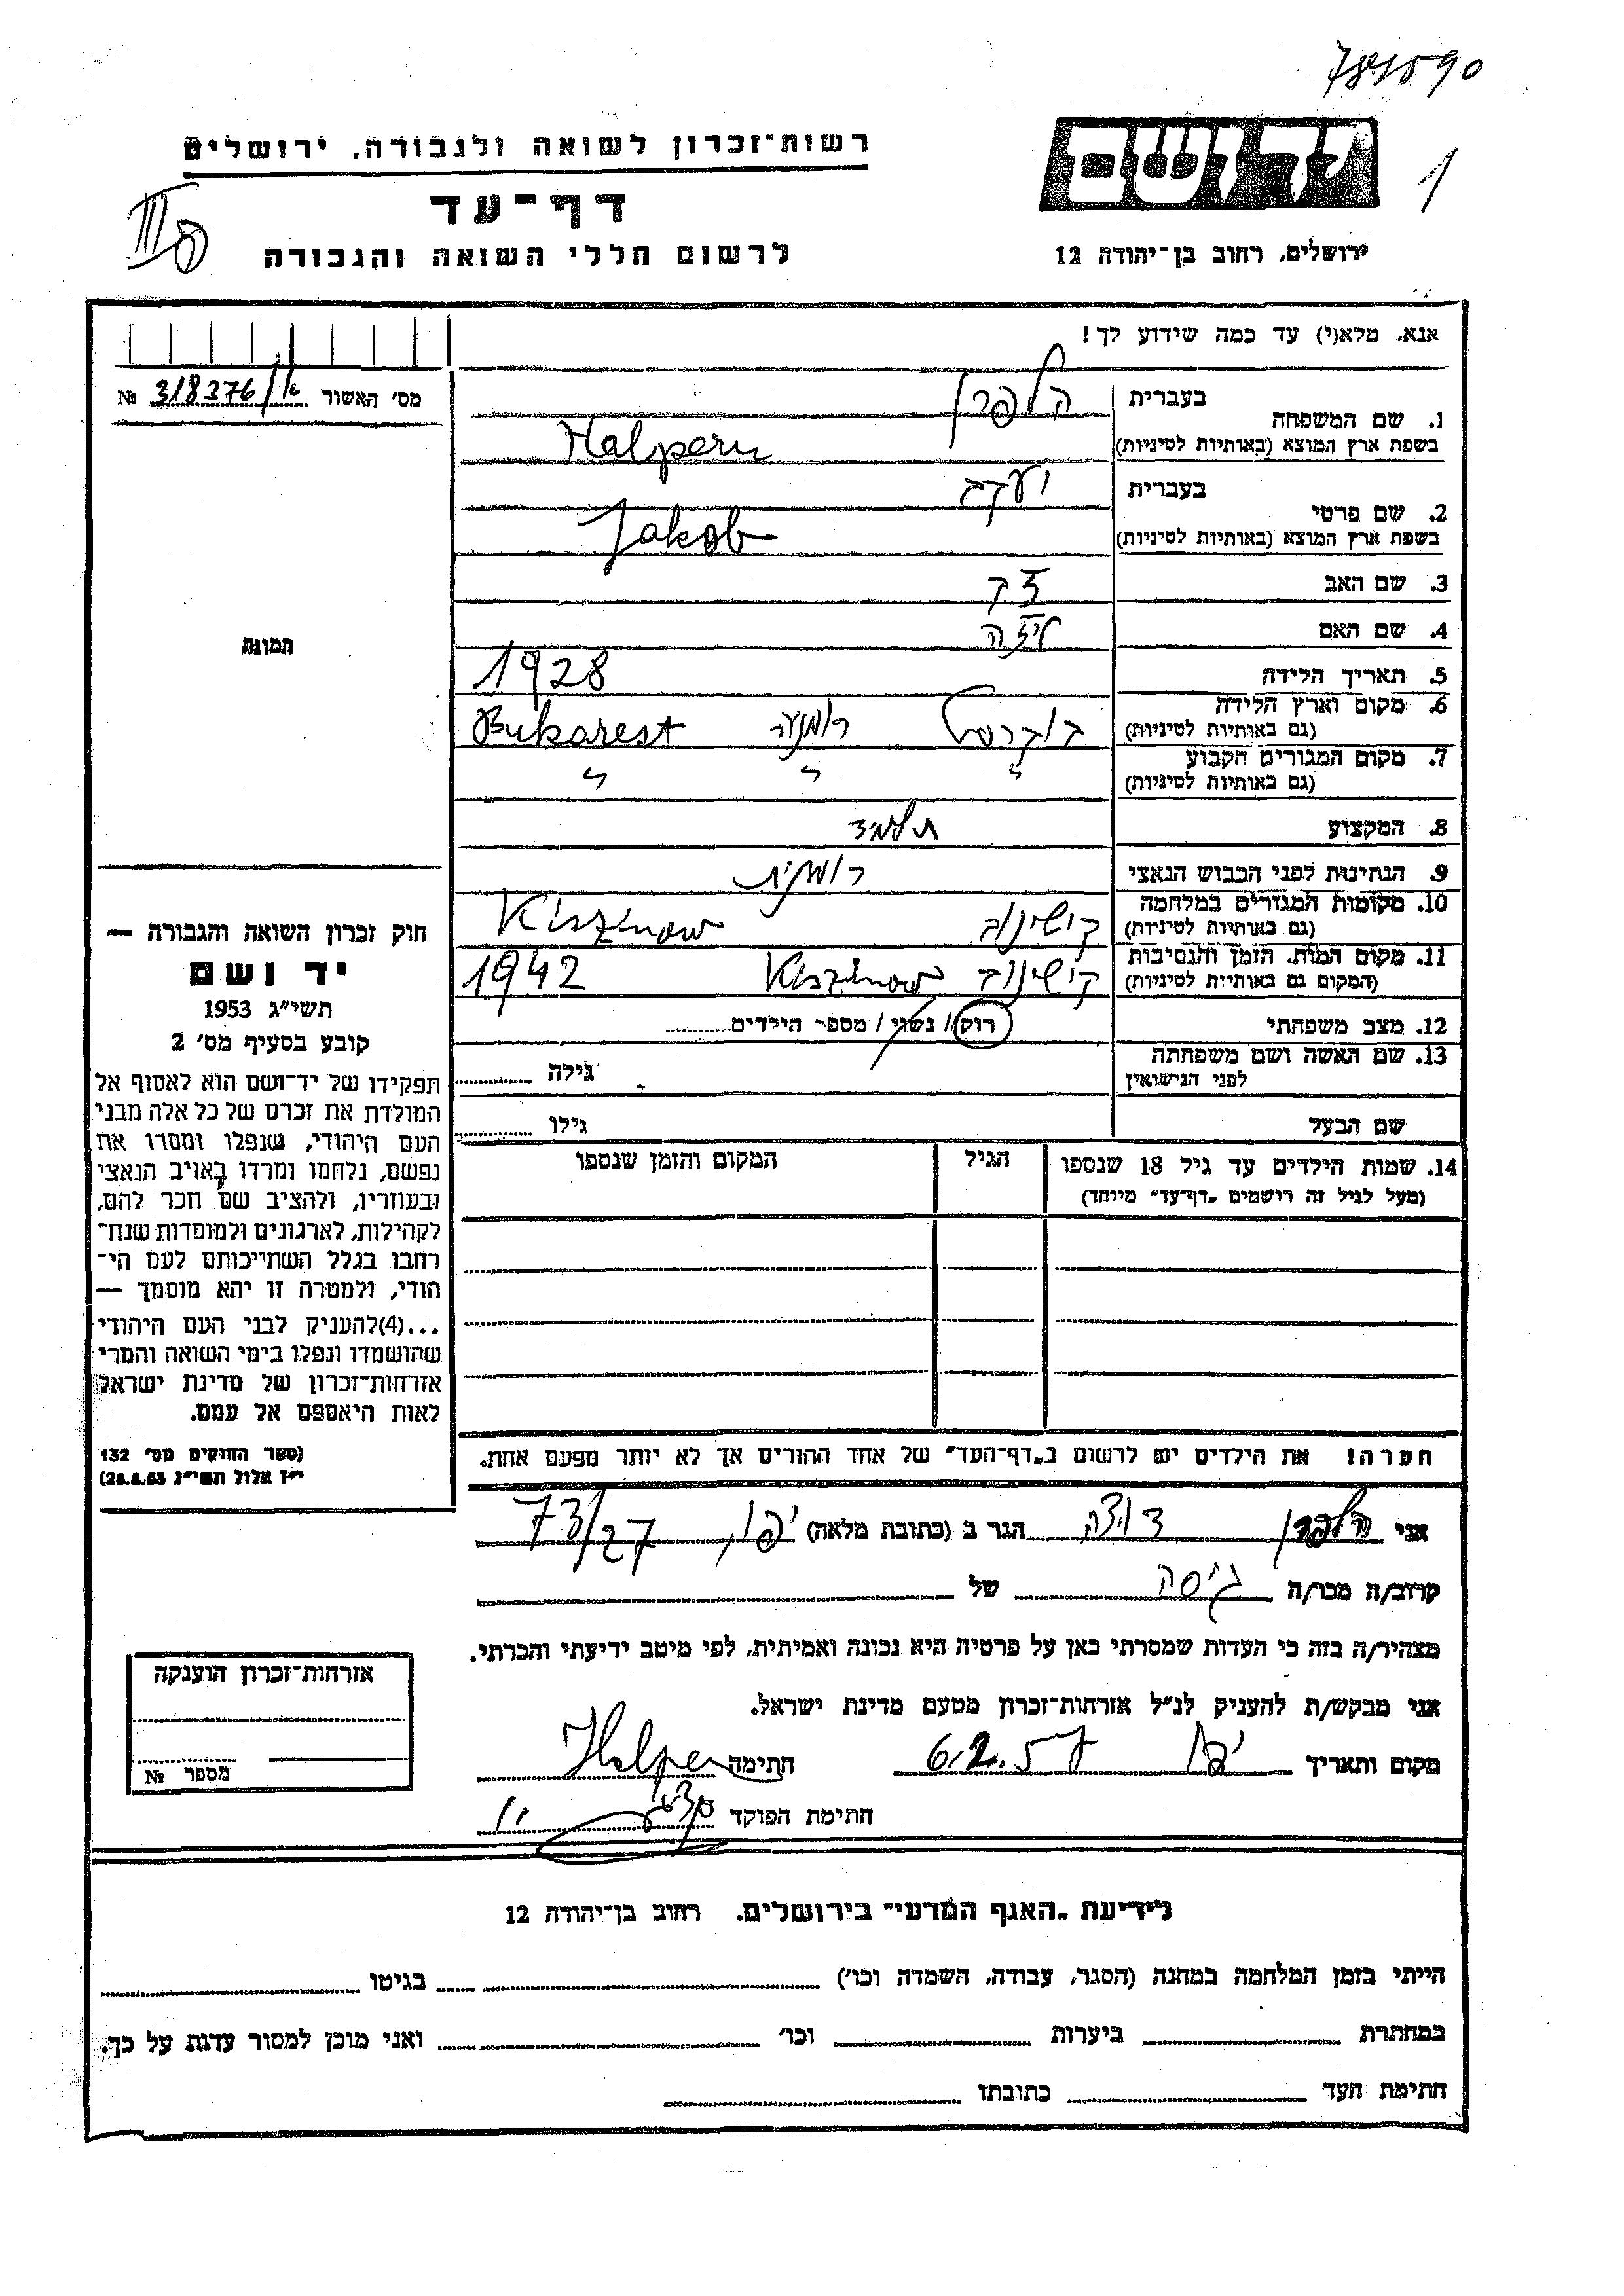 רשות־זכרון לשואה ולגבורה, ירושלים
יד ושם
1
דף־עד
לרשום חללי השואה והגבורה
ירושלים, רחוב בן־יהודה 12
אנא, מלא(י) עד כמה שידוע לך!
מס׳ האשור № 318376/
1. שם המשפחה
בעברית הלפרן
בשפת ארץ המוצא (באותיות לטיניות) Halpern
2. שם פרטי
בעברית יעקב
בשפת ארץ המוצא (באותיות לטיניות) Jakob
3. שם האב
4. שם האם ליזה
5. תאריך הלידה 1928
6. מקום וארץ הלידה (גם באותיות לטיניות) בוקרסט רומניה Bukarest
7. מקום המגורים הקבוע (גם באותיות לטיניות) " " "
8. המקצוע תלמיד
9. הנתינות לפני הכבוש הנאצי רומנית
10. מקומות המגורים במלחמה (גם באותיות לטיניות) קישינוב Kiszinow
11. מקום המות, הזמן והנסיבות (המקום גם באותיות לטיניות) קישינוב Kiszinow 1942
12. מצב משפחתי רוק / נשוי / מספר הילדים
13. שם האשה ושם משפחתה לפני הנישואין גילה
שם הבעל גילו
14. שמות הילדים עד גיל 18 שנספו הגיל המקום והזמן שנספו
(מעל לגיל זה רושמים „דף־עד״ מיוחד)
תמונה
חוק זכרון השואה והגבורה —
יד ושם
תשי״ג 1953
קובע בסעיף מס׳ 2
תפקידו של יד־ושם הוא לאסוף אל
המולדת את זכרם של כל אלה מבני
העם היהודי, שנפלו ומסרו את
נפשם, נלחמו ומרדו באויב הנאצי
ובעוזריו, ולהציב שם וזכר להם,
לקהילות, לארגונים ולמוסדות שנח־
רחבו בגלל השתייכותם לעם הי־
הודי, ולמטרה זו יהא מוסמך —
...(4)להעניק לבני העם היהודי
שהושמדו ונפלו בימי השואה והמרי
אזרחות־זכרון של מדינת ישראל
לאות היאספם אל עמם.
(ספר החוקים מס׳ 132
י״ז אלול תשי״ג 28.8.53)
הערה! את הילדים יש לרשום ב„דף־העד״ של אחד ההורים אך לא יותר מפעם אחת.
אני הלפרן הגר ב (כתובת מלאה) יפו, 73/27
קרוב/ה מכר/ה גיסה של
מצהיר/ה בזה כי העדות שמסרתי כאן על פרטיה היא נכונה ואמיתית, לפי מיטב ידיעתי והכרתי.
אני מבקש/ת להעניק לנ״ל אזרחות־זכרון מטעם מדינת ישראל.
מקום ותאריך יפו 6.2.57 חתימה Halpern
חתימת הפוקד
אזרחות־זכרון הוענקה
מספר №
לידיעת „האגף המדעי״ בירושלים, רחוב בן־יהודה 12
הייתי בזמן המלחמה במחנה (הסגר, עבודה, השמדה וכו׳) בגיטו
במחתרת ביערות וכו׳ ואני מוכן למסור עדות על כך.
חתימת העד כתובתו